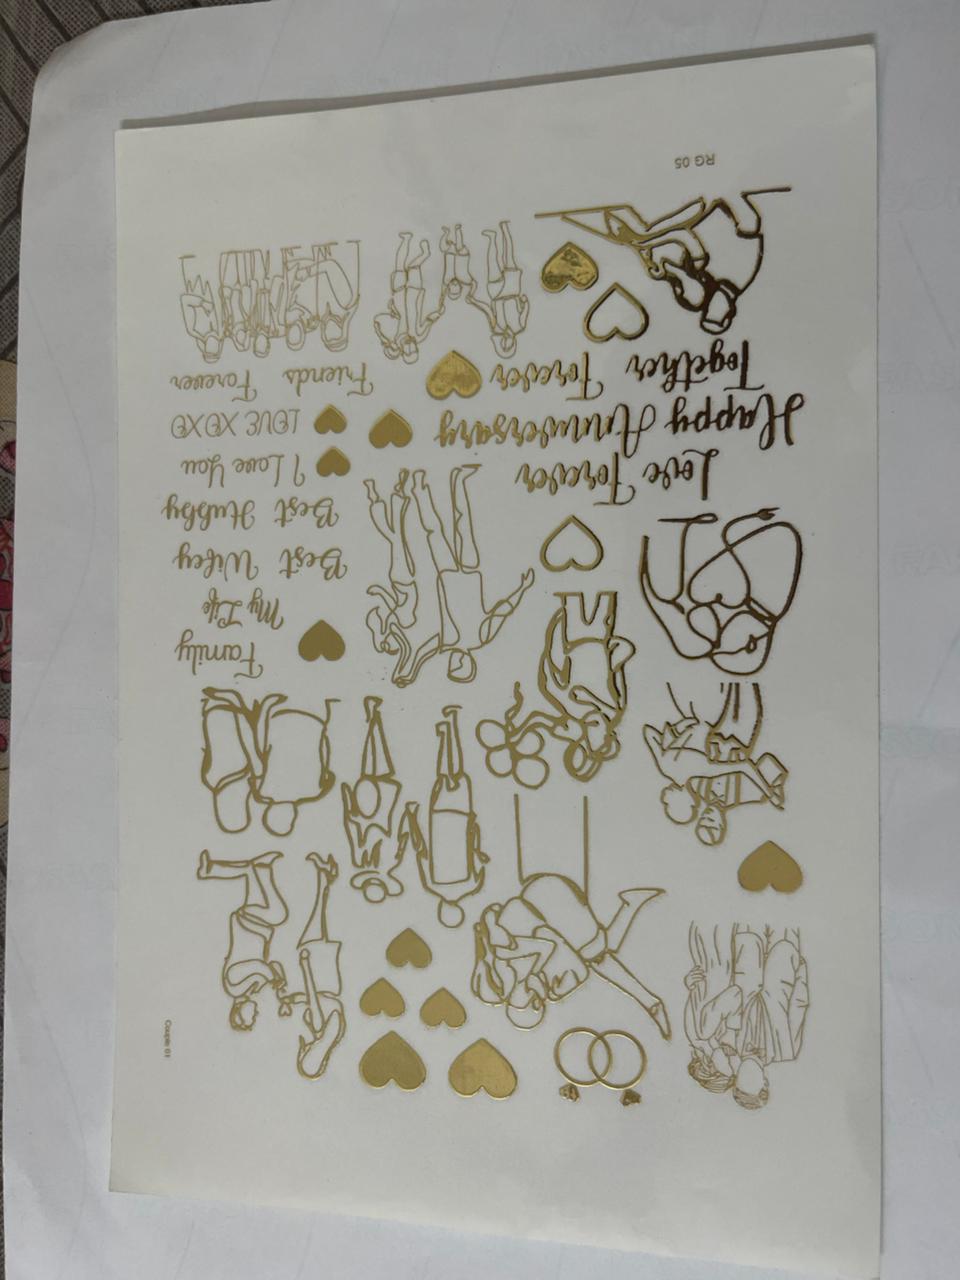 Couple 01
Family
My Life
Best Wifey
Best Hubby
I Love You
LOVE XOXO
Friends Forever
Love Forever
Happy Anniversary
Together Forever
RG 05